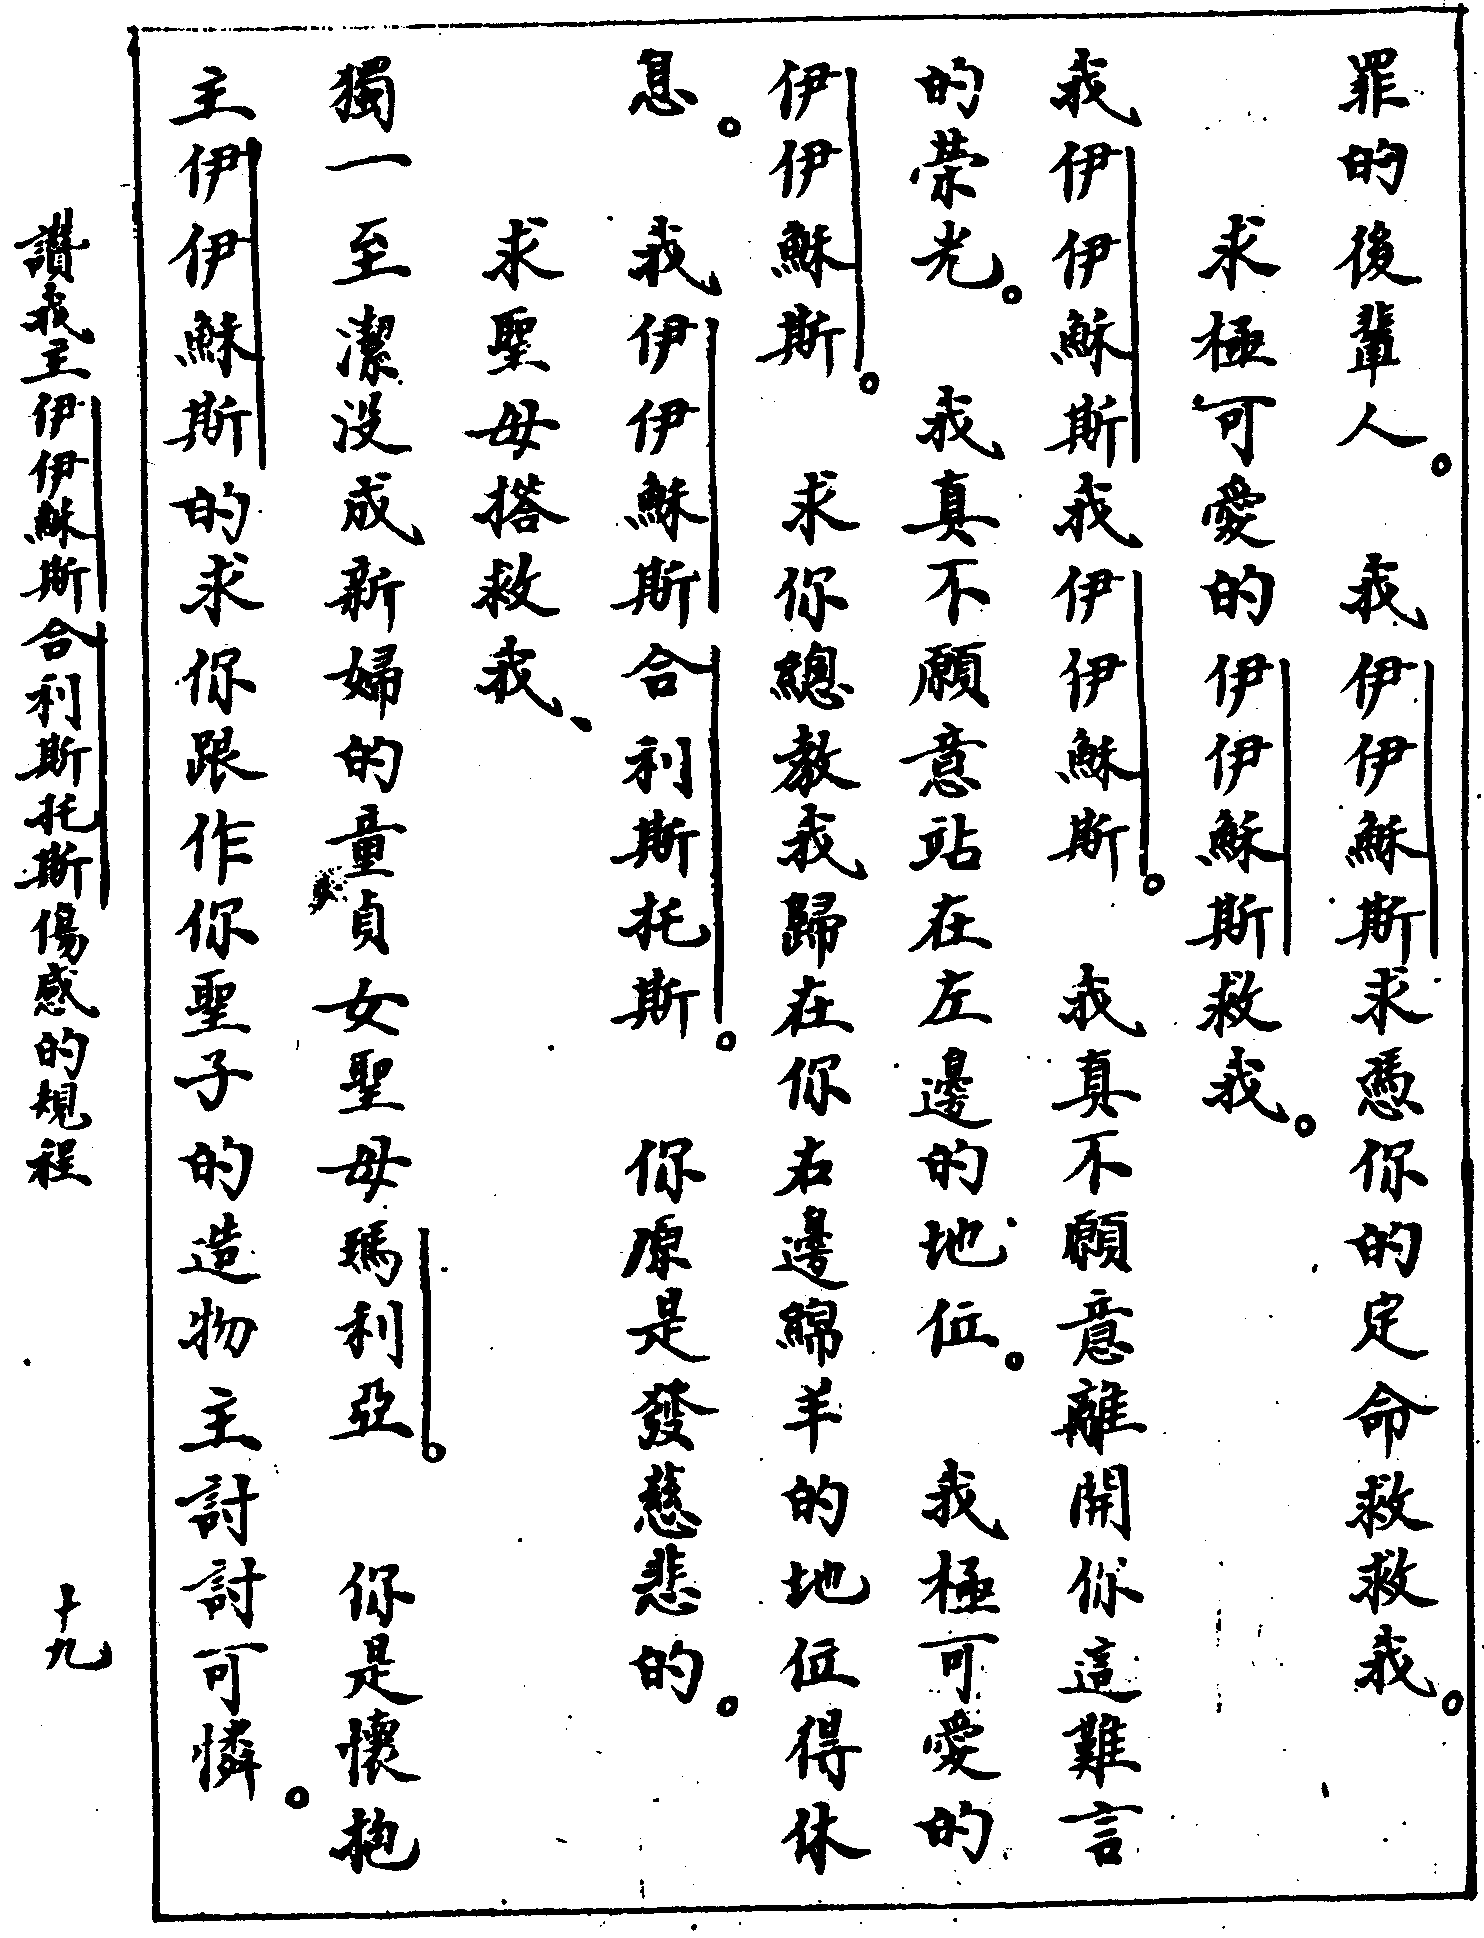 罪的後輩人。　我伊伊穌斯求憑你的定命救救我。
求極可愛的伊伊穌斯救我。
我伊伊穌斯我伊伊穌斯。　我真不願意離開你這難言
的榮光。　我真不願意站在左邊的地位。　我極可愛的
伊伊穌斯。　求你總教我歸在你右邊綿羊的地位得休
息。　我伊伊穌斯合利斯托斯。　你原是發慈悲的。
求聖母搭救我、
獨一至潔没成新婦的童貞女聖母瑪利亞。　你是懷抱
主伊伊穌斯的求你跟作你聖子的造物主討討可憐。
讚我主伊伊穌斯合利斯托斯傷感的規程
十九